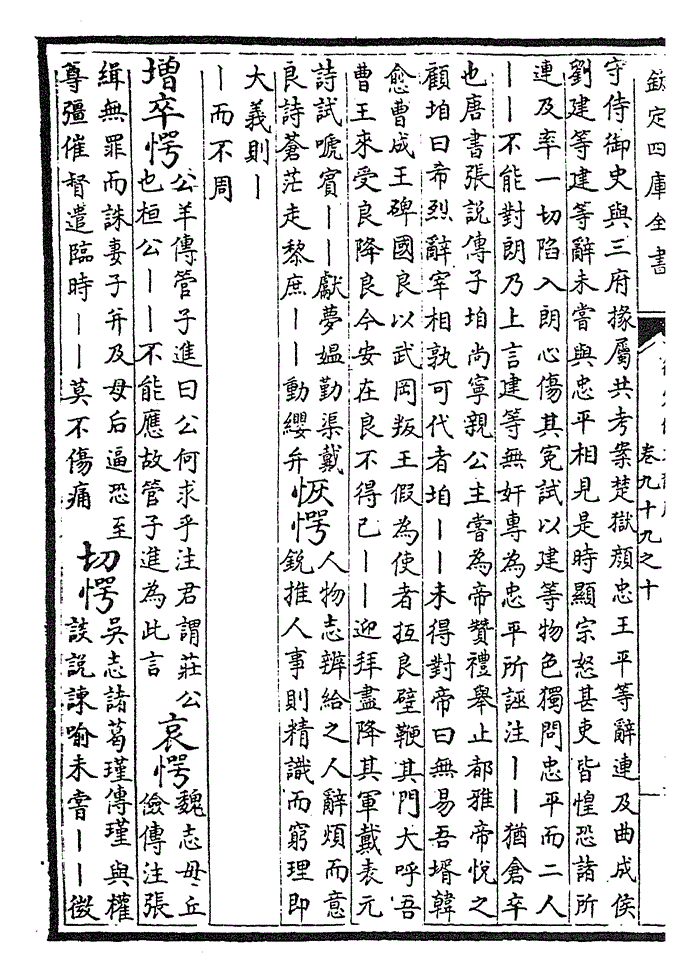 欽定四庫全書
卷九十九之十
守侍御史與三府掾屬共考案楚獄顔忠王平等辭連及曲成侯
劉建等建等辭未嘗與忠平相見是時顯宗怒甚吏皆惶恐諸所
連及率一切陷入朗心傷其寃試以建等物色獨問忠平而二人
丨丨不能對朗乃上言建等無奸專為忠平所誣注丨丨猶倉卒
也唐書張説傳子垍尚寧親公主嘗為帝贊禮舉止都雅帝悦之
顧垍曰希烈辭宰相孰可代者垍丨丨未得對帝曰無易吾壻韓
愈曹成王碑國良以武岡叛王假為使者抵良壁鞭其門大呼吾
曹王來受良降良今安在良不得已丨丨迎拜盡降其軍戴表元
詩試唬賓丨丨獻夢媪勤渠戴
良詩蒼茫走黎庶丨丨動纓弁
恢愕
人物志辨給之人辭煩而意
鋭推人事則精識而窮理即
大義則丨
丨而不周
增卒愕
公羊傳管子進曰公何求乎注君謂莊公
也桓公丨丨不能應故管子進為此言
哀愕
魏志毋丘
儉傳注張
緝無罪而誅妻子并及母后逼恐至
尊彊催督遣臨時丨丨莫不傷痛
切愕
吳志諸葛瑾傳瑾與權
談説諫喻未嘗丨丨微